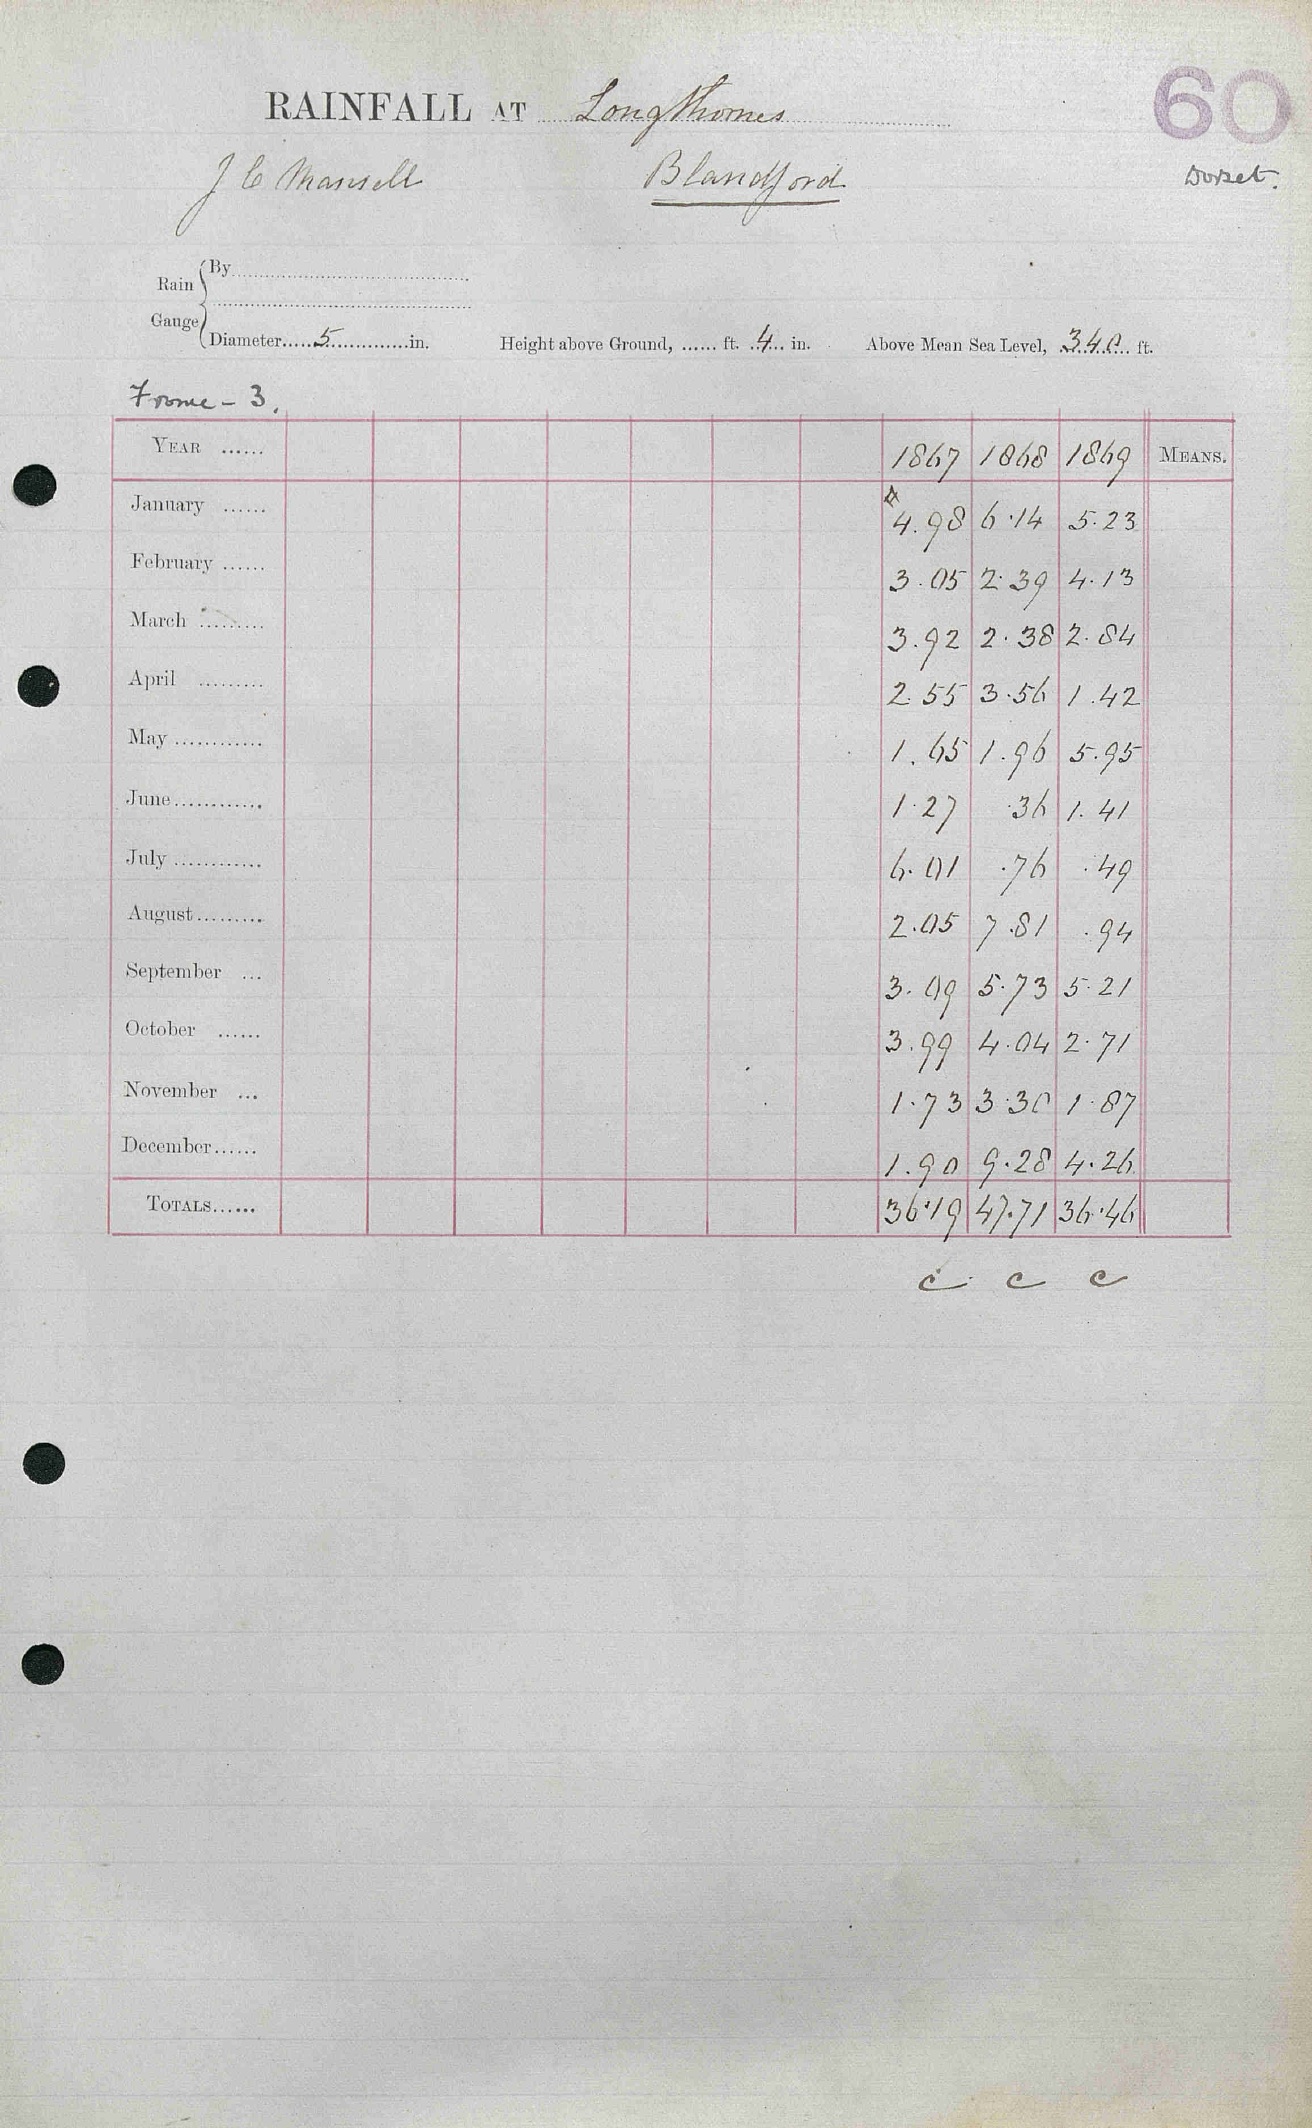 60
RAINFALL AT Longthornes
J C Mansell Blandford Dorset.
Rain Gauge
By
Diameter 5 in. Height above Ground, ft. 4 in. Above Mean Sea Level, 340 ft.
Frome - 3.
YEAR 1867 1868 1869 MEANS.
January 4.98 6.14 5.23
February 3.05 2.39 4.13
March 3.92 2.38 2.84
April 2.55 3.56 1.42
May 1.65 1.96 5.95
June 1.27 .36 1.41
July 6.01 .76 .49
August 2.05 7.81 .94
September 3.09 5.73 5.21
October 3.99 4.04 2.71
November 1.73 3.30 1.87
December 1.90 9.28 4.26
TOTALS 36.19 47.71 36.46
c c c